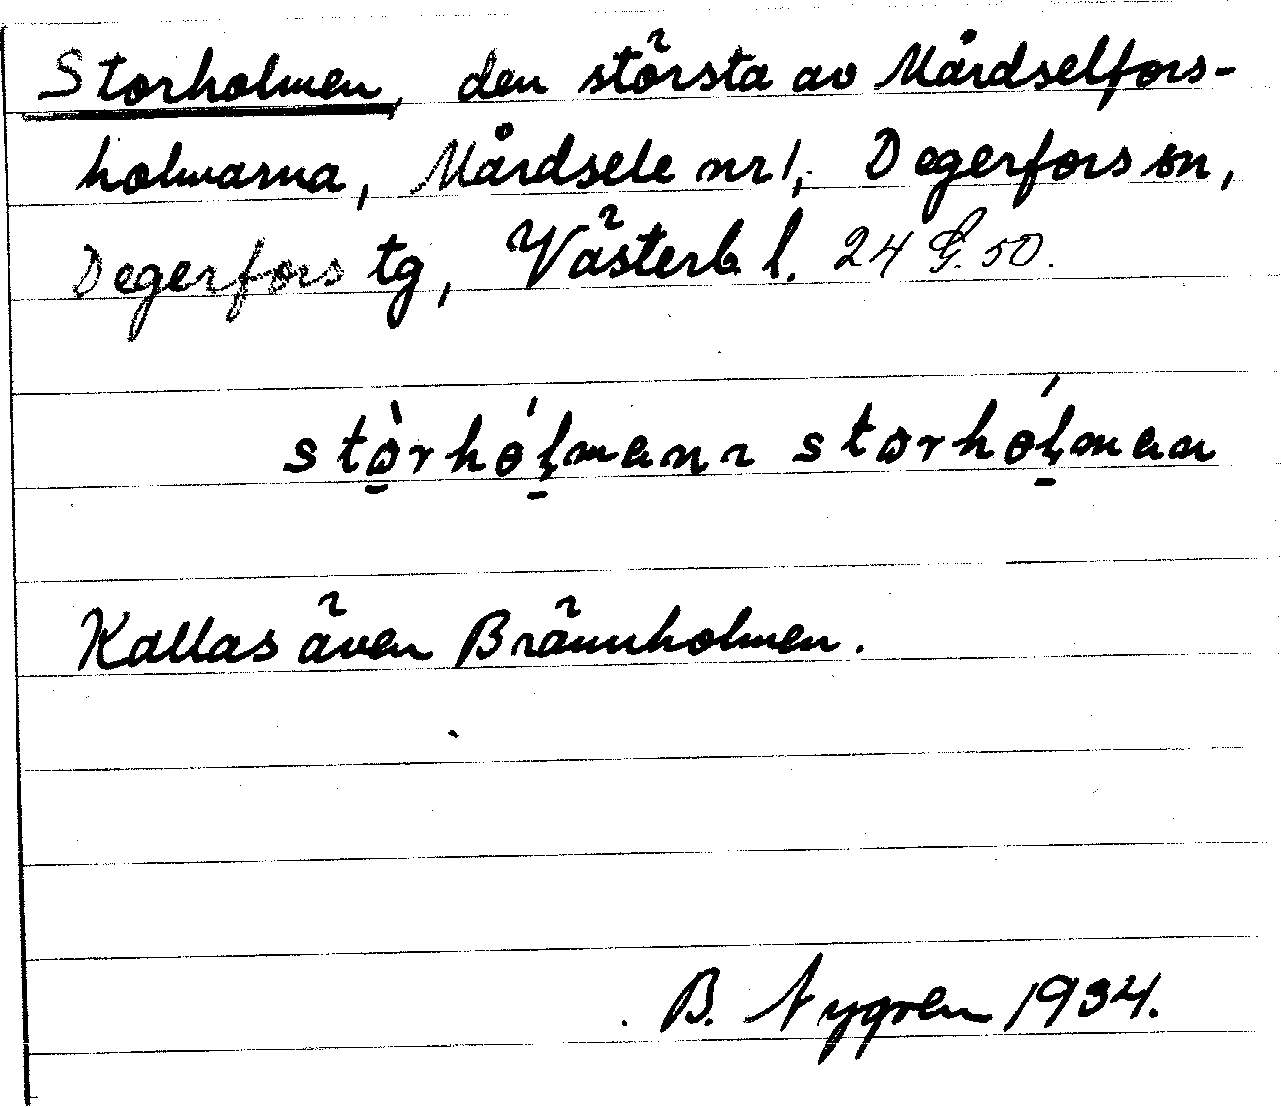 Storholmen, den största av Mårdselfors-
holmarna, Mårdsele nr 1, Degerfors sn,
Degerfors tg, Västerb. l. 24 G. 50.
stòrhólmann storhólman
Kallas även Brännholmen.
B. Nygren 1934.